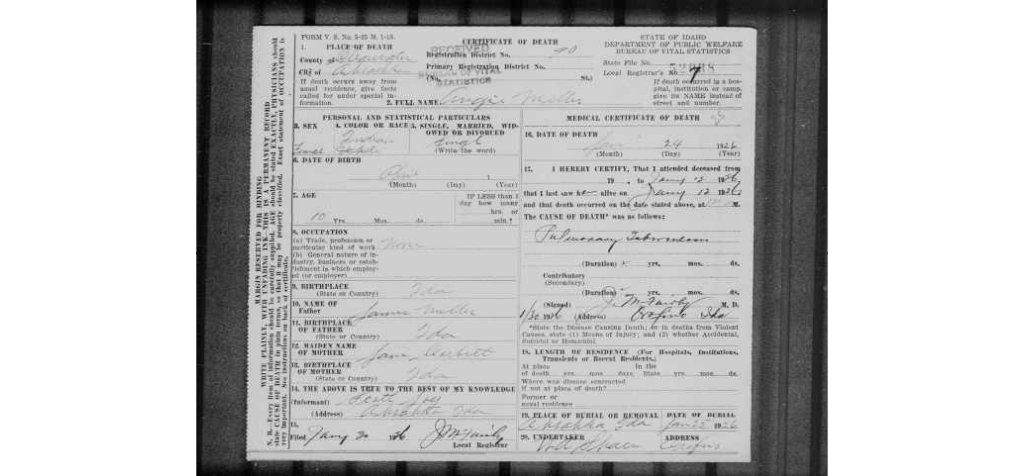 FORM V. S. No. 5-25 M. 1-19.
CERTIFICATE OF DEATH
STATE OF IDAHO
DEPARTMENT OF PUBLIC WELFARE
BUREAU OF VITAL STATISTICS
1. PLACE OF DEATH
RECEIVED
BUREAU OF VITAL STATISTICS
County of
Registration District No.
State File No.
City of Ahsahka
Primary Registration District No.
Local Registrar's No. 7
(No. St.)
If death occurs away from
usual residence, give facts
called for under special information.
If death occurred in a hospital,
institution or camp,
give its NAME instead of
street and number.
2. FULL NAME Miller
PERSONAL AND STATISTICAL PARTICULARS
MEDICAL CERTIFICATE OF DEATH
3. SEX
4. COLOR OR RACE
5. SINGLE, MARRIED, WIDOWED OR DIVORCED
Indian
Single
(Write the word)
16. DATE OF DEATH
Jan 24 1926
(Month) (Day) (Year)
6. DATE OF BIRTH
(Month) (Day) (Year)
17. I HEREBY CERTIFY, That I attended deceased from
19 , to Jany 12 1926
that I last saw h alive on Jany 12 1926
and that death occurred on the date stated above, at M.
The CAUSE OF DEATH* was as follows:
7. AGE
IF LESS than 1
day how many
hrs. or
min.?
10 Yrs. Mos. ds.
Pulmonary Tuberculosis
8. OCCUPATION
(a) Trade, profession or
particular kind of work None
(b) General nature of industry,
business or establishment
in which employed
(or employer)
(Duration) yrs. mos. ds.
Contributory
(Secondary)
(Duration) yrs. mos. ds.
9. BIRTHPLACE Ida
(State or Country)
(Signed) J. M. Fairly M. D.
1/30 1926 (Address) Orofino Ida
10. NAME OF
Father James Miller
*State the Disease Causing Death; or in deaths from Violent
Causes, state (1) Means of Injury; and (2) whether Accidental,
Suicidal or Homicidal.
11. BIRTHPLACE
OF FATHER Ida
(State or Country)
12. MAIDEN NAME
OF MOTHER Jane Corbett
18. LENGTH OF RESIDENCE (For Hospitals, Institutions,
Transients or Recent Residents.)
At place of death yrs. mos. days. In the State yrs. mos. ds.
13. BIRTHPLACE
OF MOTHER Ida
(State or Country)
Where was disease contracted
if not at place of death?
Former or
usual residence
14. THE ABOVE IS TRUE TO THE BEST OF MY KNOWLEDGE
(Informant)
(Address) Ahsahka Ida
19. PLACE OF BURIAL OR REMOVAL
DATE OF BURIAL
Ahsahka Ida 1926
15.
Filed Jany 30 1926 J. M. Fairly
Local Registrar
20. UNDERTAKER
ADDRESS
Orofino
MARGIN RESERVED FOR BINDING
WRITE PLAINLY, WITH UNFADING INK. THIS IS A PERMANENT RECORD
N. B.—Every item of information should be carefully supplied. AGE should be stated EXACTLY. PHYSICIANS should
state CAUSE OF DEATH in plain terms, so that it may be properly classified. Exact statement of OCCUPATION is
very important. See instructions on back of certificate.